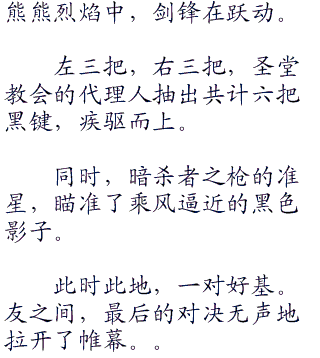 熊熊烈焰中，剑锋在跃动。
左三把，右三把，圣堂
教会的代理人抽出共计六把
黑键，疾驱而上。
同时，暗杀者之枪的准
星，瞄准了乘风逼近的黑色
影子。
此时此地，一对好基。
友之间，最后的对决无声地
拉开了帷幕。。